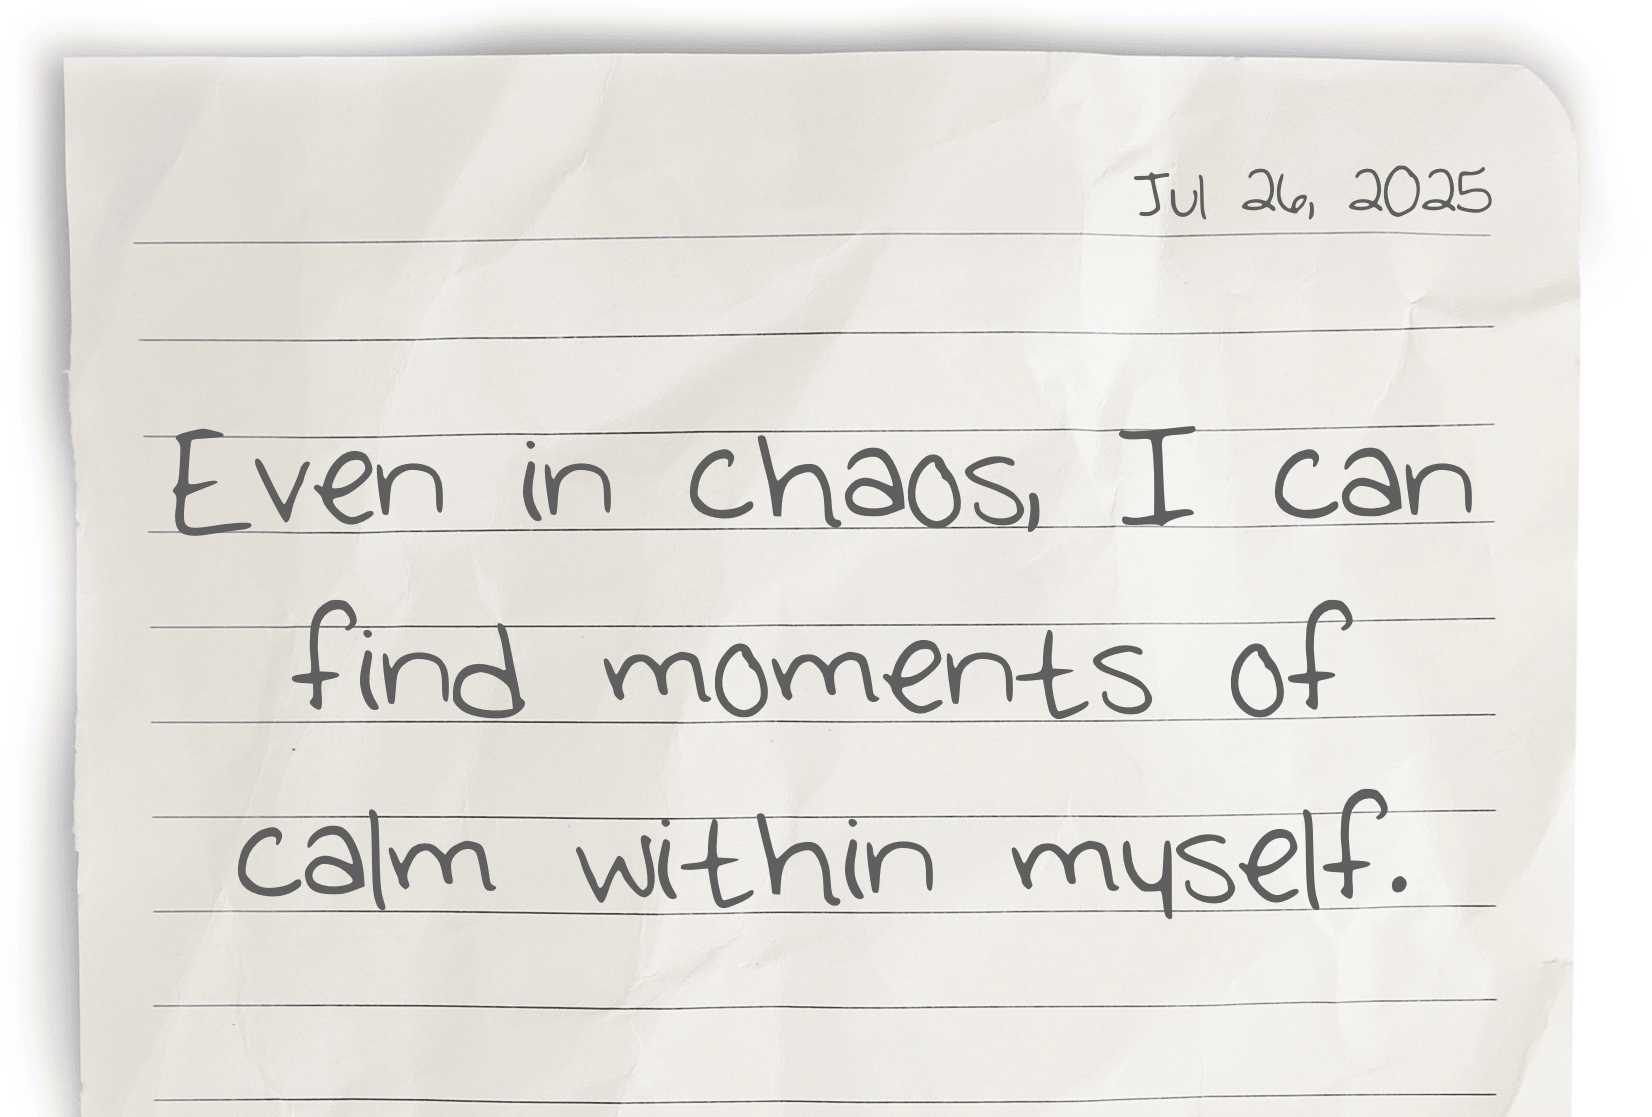 Jul 26, 2025
Even in chaos, I can
find moments of
calm within myself.